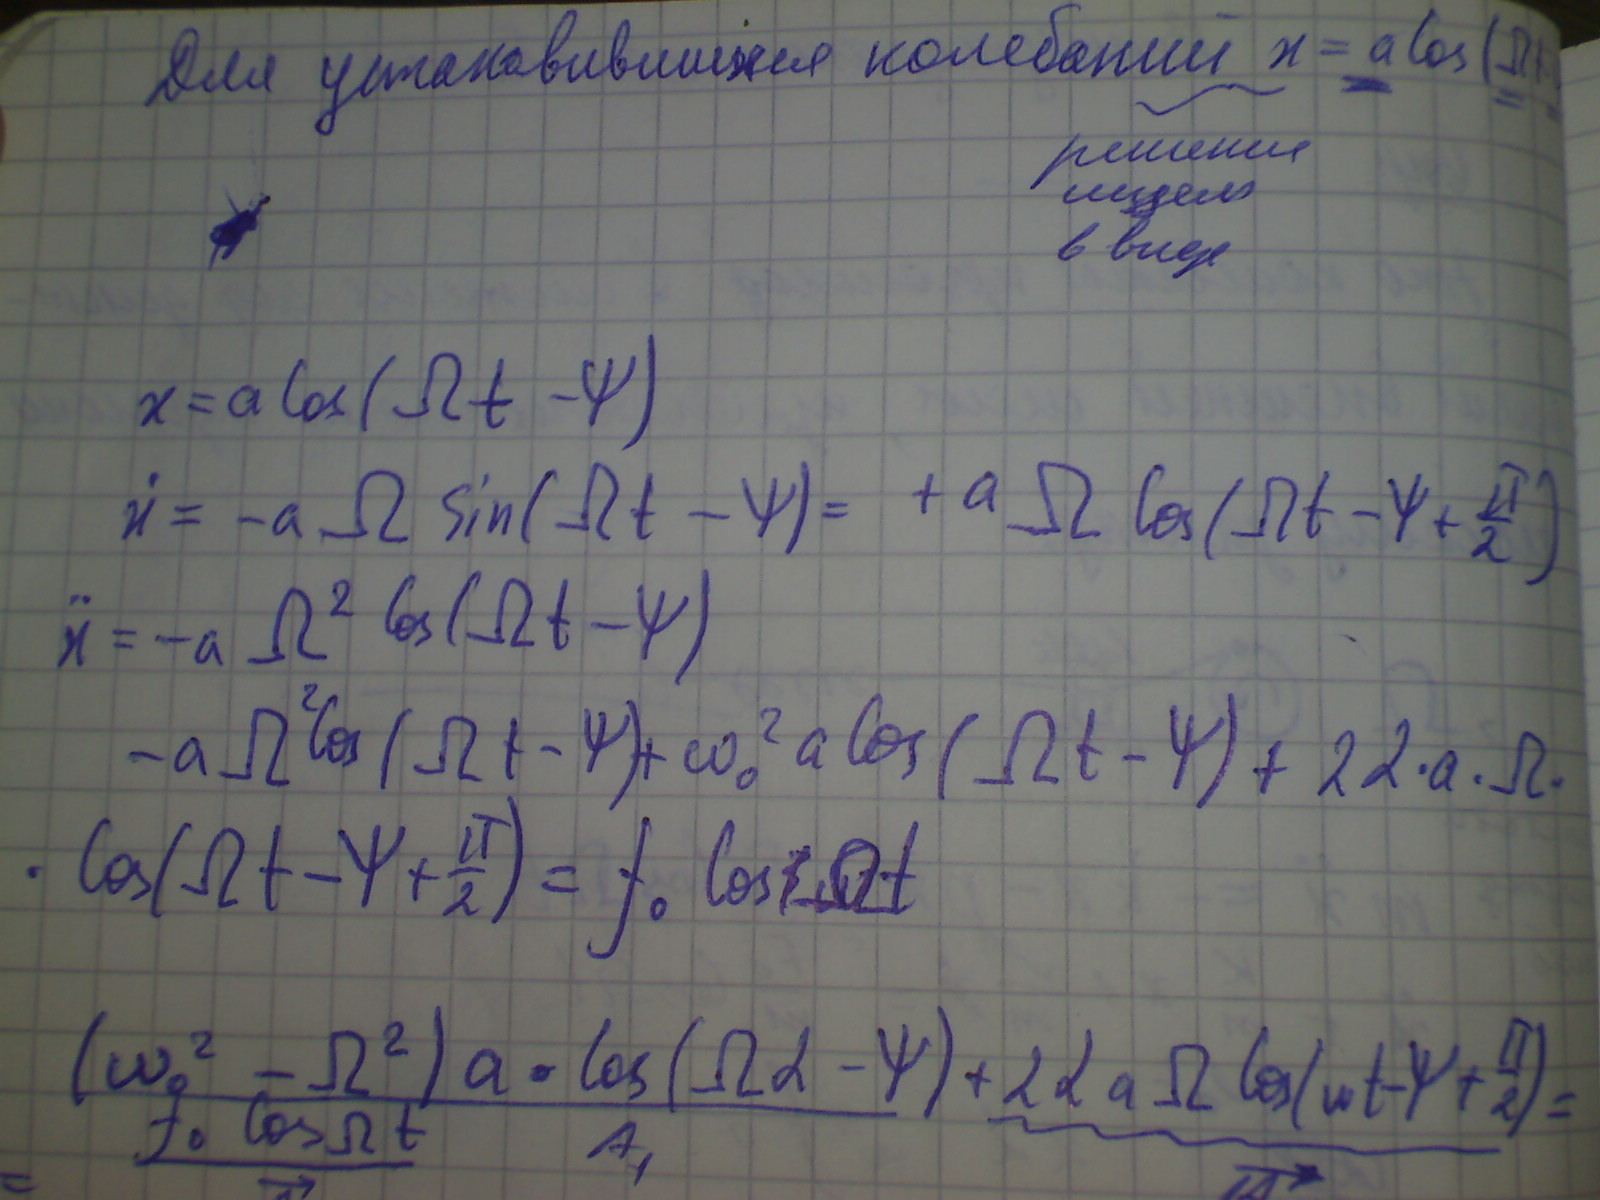 Для установившихся колебаний x = a cos(Ωt
решение
ищем
в виде
x = a cos(Ωt - Ψ)
ẋ = -a Ω sin(Ωt - Ψ) = + a Ω cos(Ωt - Ψ + π/2)
ẍ = -a Ω² cos(Ωt - Ψ)
-a Ω² cos(Ωt - Ψ) + ω₀² a cos(Ωt - Ψ) + 2α·a·Ω·
· cos(Ωt - Ψ + π/2) = f₀ cos Ωt
(ω₀² - Ω²) a · cos(Ωα - Ψ) + 2α a Ω cos(ωt - Ψ + π/2) =
= f₀ cos Ωt
A₁